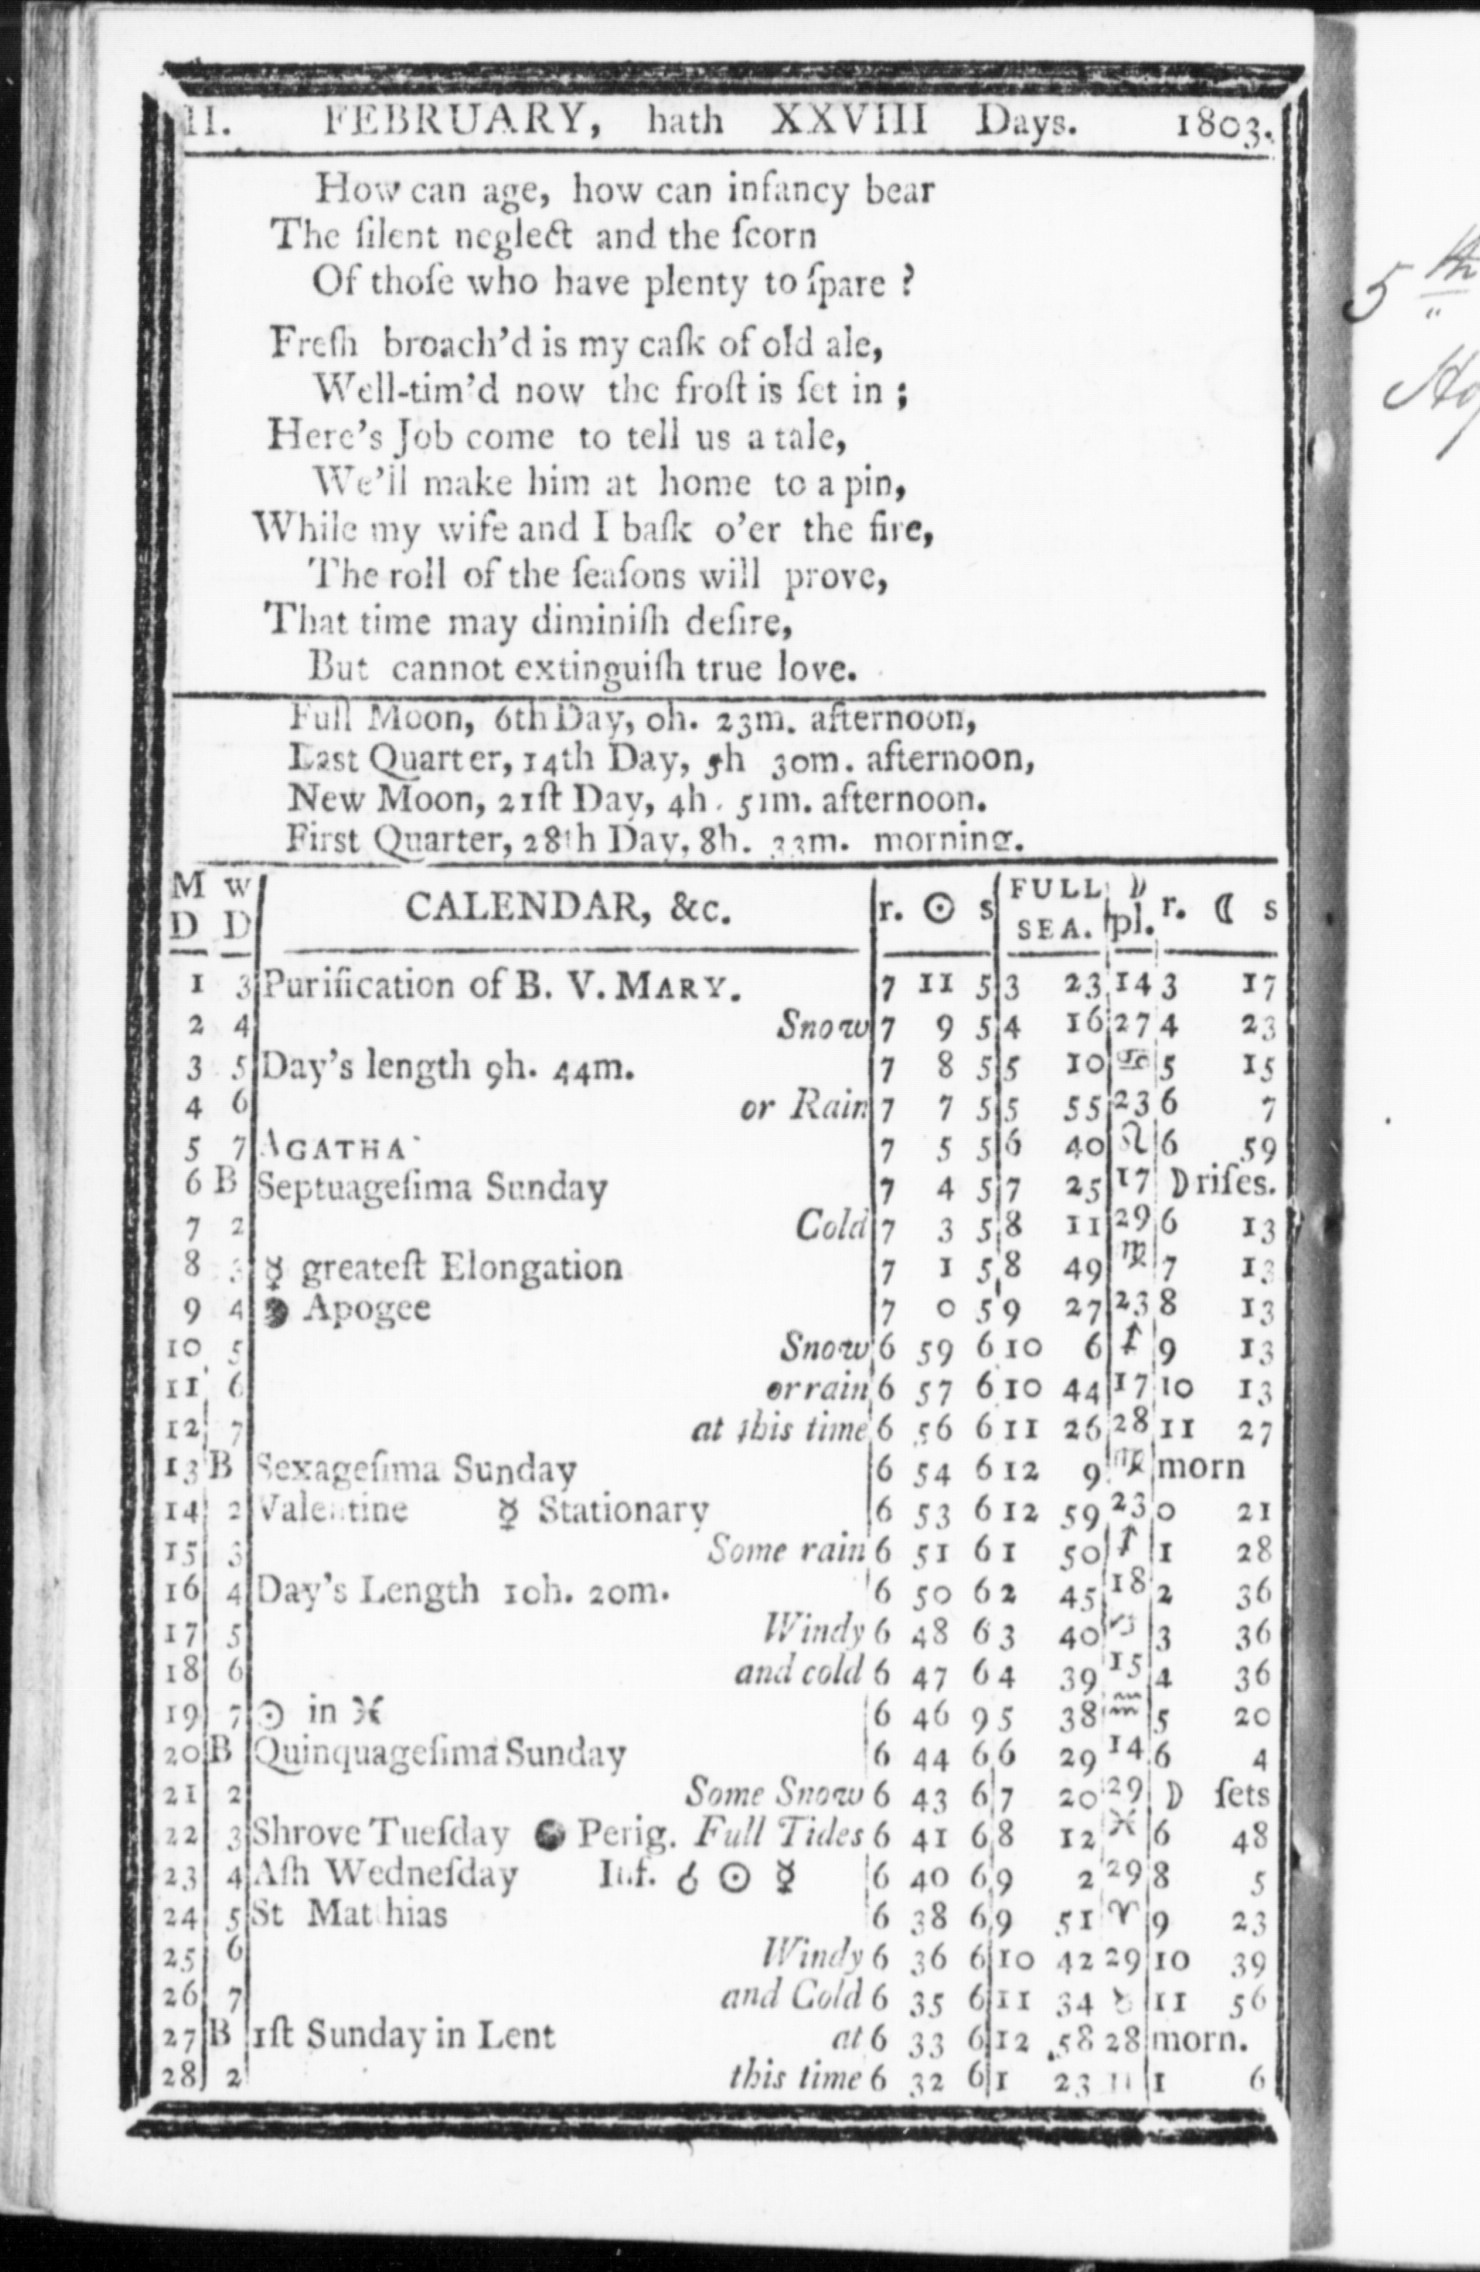 II. FEBRUARY, hath XXVIII Days. 1803.
How can age, how can infancy bear
The ſilent neglect and the ſcorn
Of thoſe who have plenty to ſpare ?
Freſh broach'd is my caſk of old ale,
Well-tim'd now the froſt is ſet in ;
Here's Job come to tell us a tale,
We'll make him at home to a pin,
While my wife and I baſk o'er the fire,
The roll of the ſeaſons will prove,
That time may diminiſh deſire,
But cannot extinguiſh true love.
Full Moon, 6th Day, 0h. 23m. afternoon,
Last Quarter, 14th Day, 5h 30m. afternoon,
New Moon, 21ſt Day, 4h. 51m. afternoon.
First Quarter, 28th Day, 8h. 33m. morning.
M W CALENDAR, &c. r. ☉ s FULL ☽ r. ☾ s
D D SEA. pl.
1 3 Purification of B. V. MARY. 7 11 5 3 23 14 3 17
2 4 Snow 7 9 5 4 16 27 4 23
3 5 Day's length 9h. 44m. 7 8 5 5 10 ♋ 5 15
4 6 or Rain 7 7 5 5 55 23 6 7
5 7 AGATHA 7 5 5 6 40 ♌ 6 59
6 B Septuageſima Sunday 7 4 5 7 25 17 ☽ riſes.
7 2 Cold 7 3 5 8 11 29 6 13
8 3 ☿ greateſt Elongation 7 1 5 8 49 ♍ 7 13
9 4 ● Apogee 7 0 5 9 27 23 8 13
10 5 Snow 6 59 6 10 6 ♐ 9 13
11 6 or rain 6 57 6 10 44 17 10 13
12 7 at this time 6 56 6 11 26 28 11 27
13 B Sexageſima Sunday 6 54 6 12 9 ♍ morn
14 2 Valentine ☿ Stationary 6 53 6 12 59 23 0 21
15 3 Some rain 6 51 6 1 50 ♐ 1 28
16 4 Day's Length 10h. 20m. 6 50 6 2 45 18 2 36
17 5 Windy 6 48 6 3 40 ♑ 3 36
18 6 and cold 6 47 6 4 39 15 4 36
19 7 ☉ in ♓ 6 46 9 5 38 ♒ 5 20
20 B Quinquageſima Sunday 6 44 6 6 29 14 6 4
21 2 Some Snow 6 43 6 7 20 29 ☽ ſets
22 3 Shrove Tueſday ● Perig. Full Tides 6 41 6 8 12 ♓ 6 48
23 4 Aſh Wedneſday Inf. ☌ ☉ ☿ 6 40 6 9 2 29 8 5
24 5 St Matthias 6 38 6 9 51 ♈ 9 23
25 6 Windy 6 36 6 10 42 29 10 39
26 7 and Cold 6 35 6 11 34 ♉ 11 56
27 B 1ſt Sunday in Lent at 6 33 6 12 58 28 morn.
28 2 this time 6 32 6 1 23 ♊ 1 6
5th